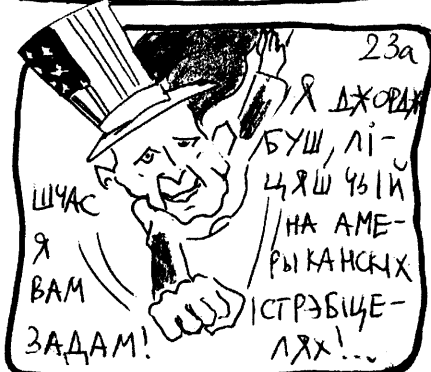 23а
Я ДЖОРДЖ
БУШ, ЛІ-
ЦЯШ ЧЫЙ
НА АМЕ-
РЫКАНСКІХ
ІСТРЭБІЦЕ-
ЛЯХ!...
ШЧАС
Я
ВАМ
ЗАДАМ!